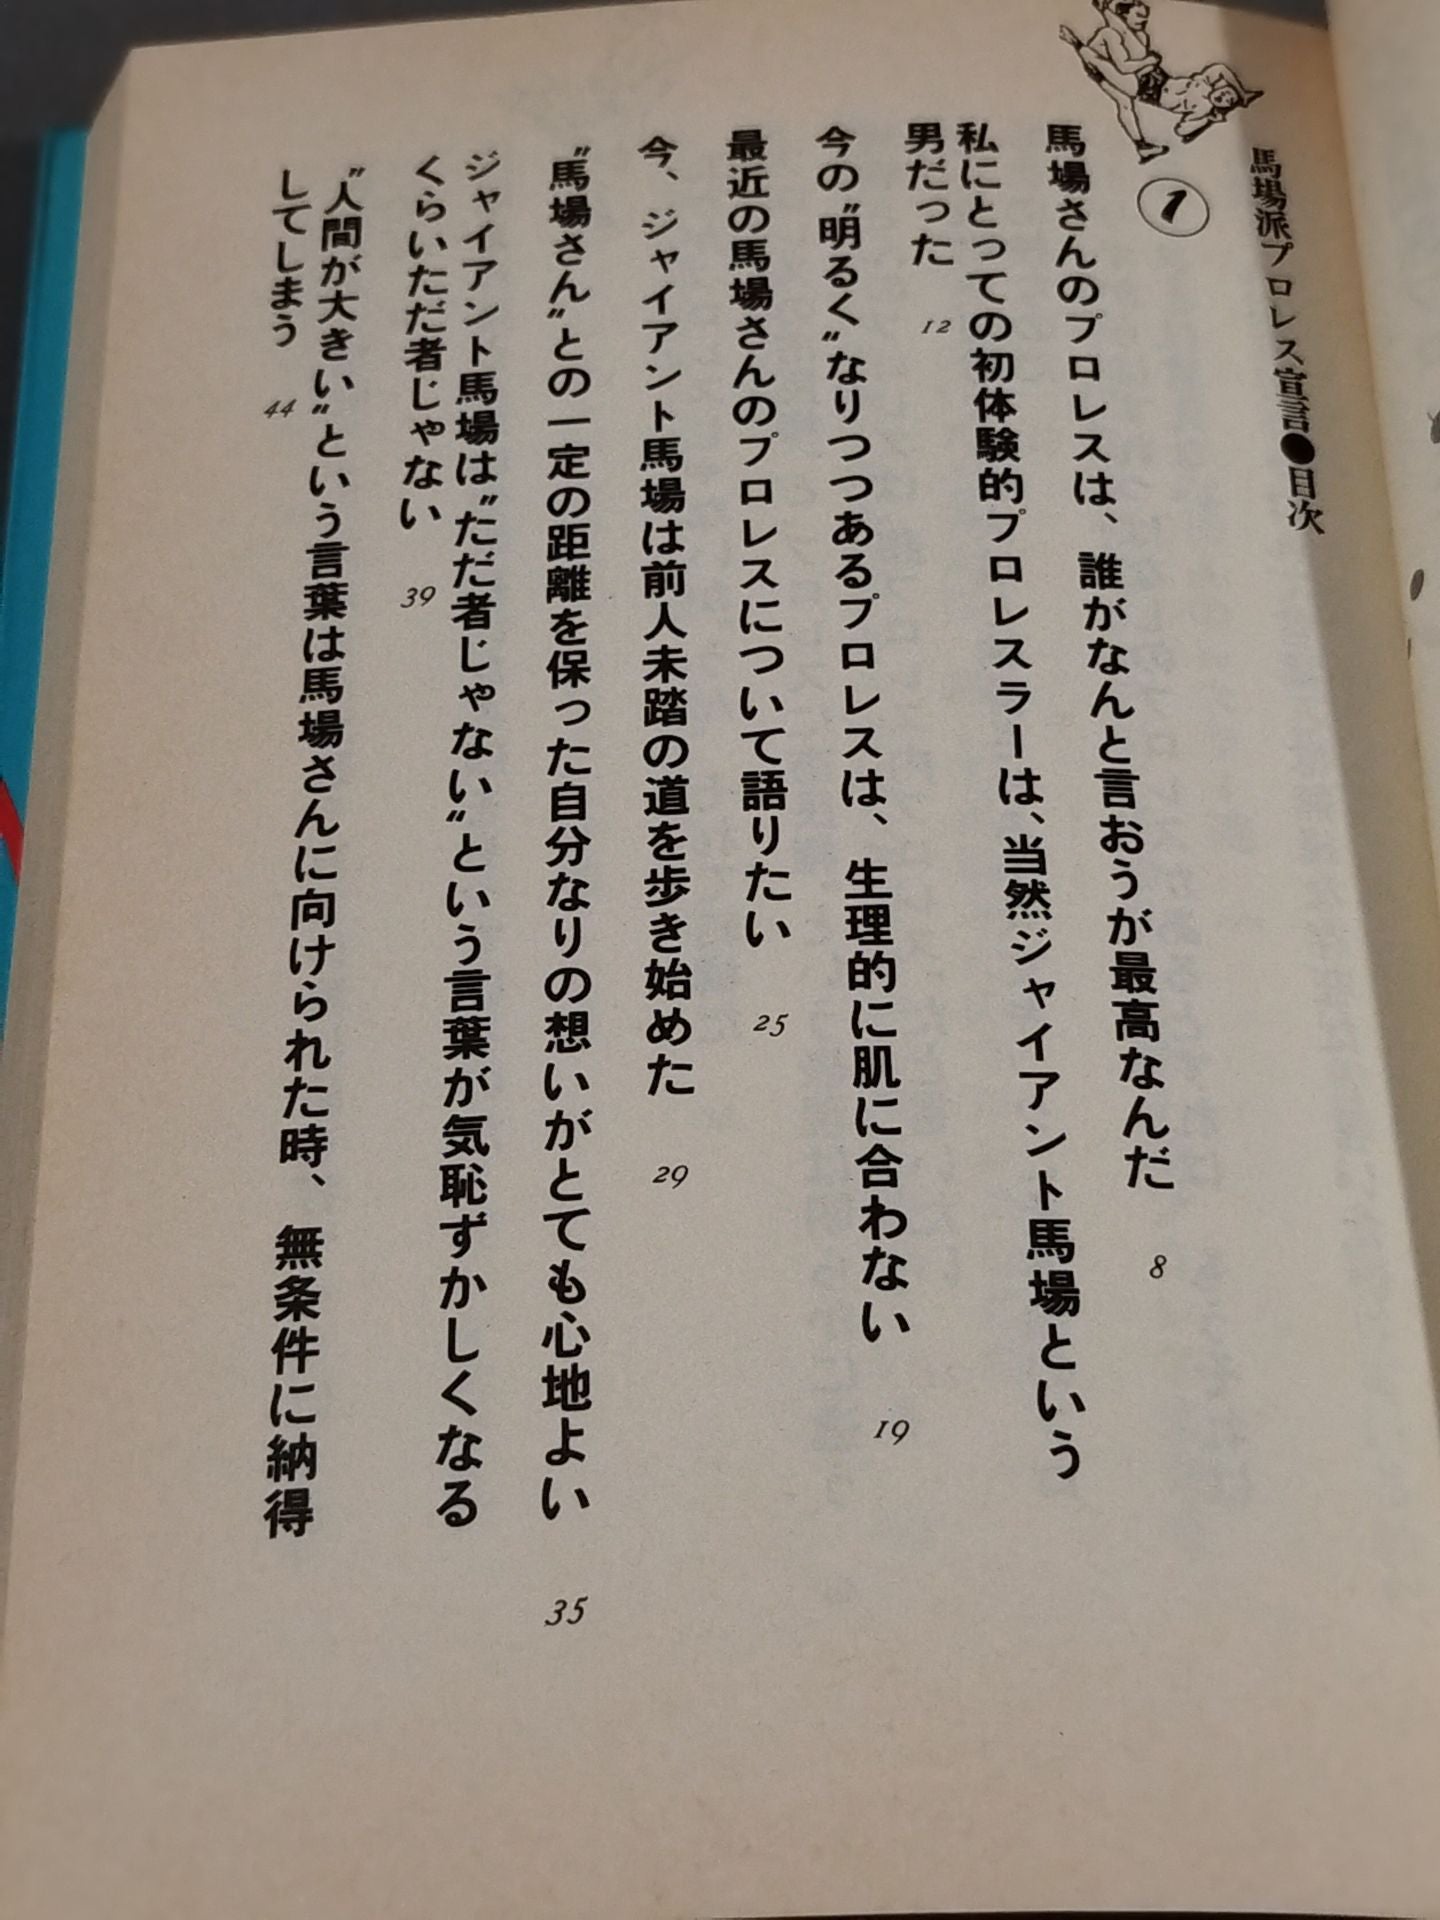 馬場派プロレス宣言●目次
1
馬場さんのプロレスは、誰がなんと言おうが最高なんだ 8
私にとっての初体験的プロレスラーは、当然ジャイアント馬場という
男だった 12
今の〝明るく〟なりつつあるプロレスは、生理的に肌に合わない 19
最近の馬場さんのプロレスについて語りたい 25
今、ジャイアント馬場は前人未踏の道を歩き始めた 29
〝馬場さん〟との一定の距離を保った自分なりの想いがとても心地よい 35
ジャイアント馬場は〝ただ者じゃない〟という言葉が気恥ずかしくなる
くらいただ者じゃない 39
〝人間が大きい〟という言葉は馬場さんに向けられた時、無条件に納得
してしまう 44